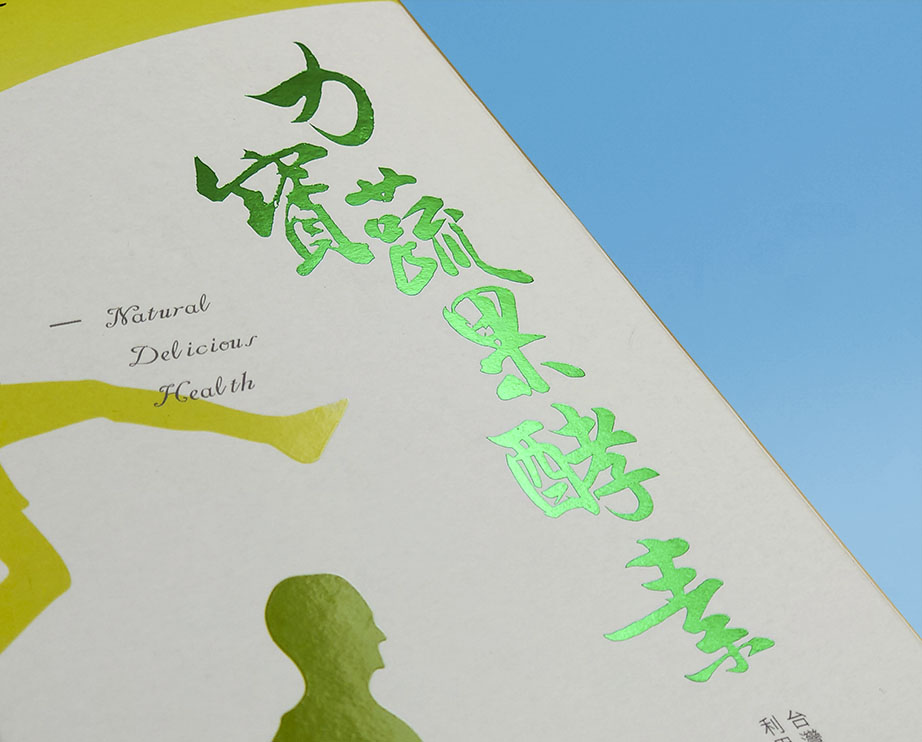 力寶蔬果酵素
— Natural
Delicious
Health
台灣
利